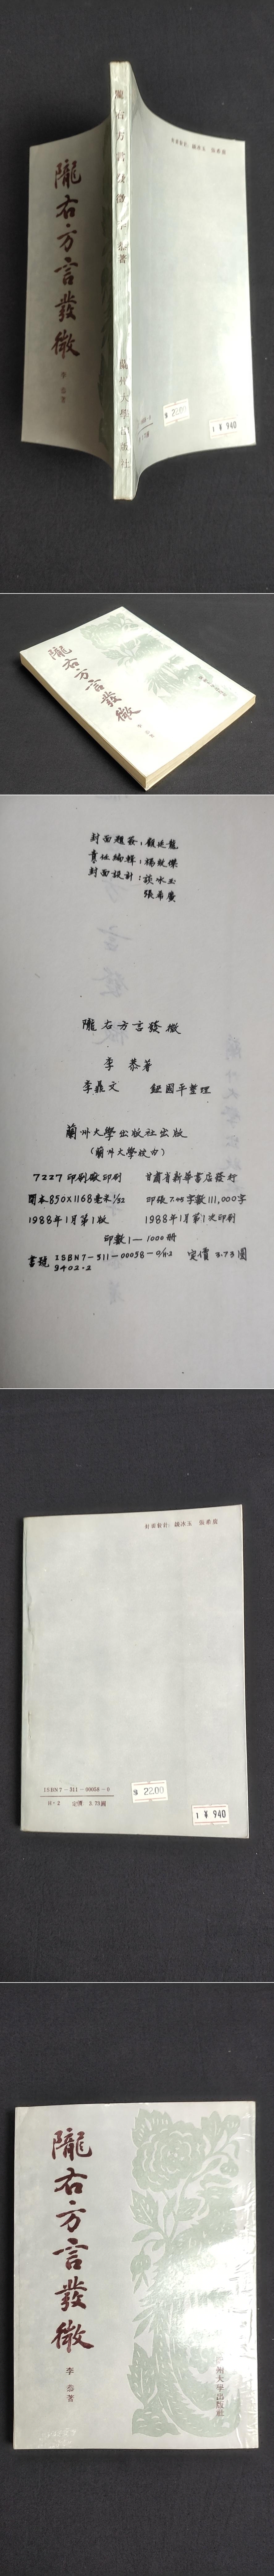 隴右方言發微
李恭著
隴右方言發微 李恭著
蘭州大學出版社
22.00
1 ¥ 940
隴右方言發微
封面題簽：顧廷龍
責任編輯：楊銳傑
封面設計：談冰玉
張希廣
隴右方言發微
李恭著
李鼎文 鈕國平整理
蘭州大學出版社出版
(蘭州大學校内)
7227印刷廠印刷 甘肅省新華書店發行
開本850X1168毫米1/32 印張7.75字數111,000字
1988年1月第1版 1988年1月第1次印刷
印數1—1000冊
書號 ISBN7-311-00058-0/H·2 定價 3.73圓
9402·2
封面設計：談冰玉 張希廣
ISBN7-311-00058-0
H·2 定價 3.73圓
22.00
1 ¥ 940
隴右方言發微
李恭著
蘭州大學出版社